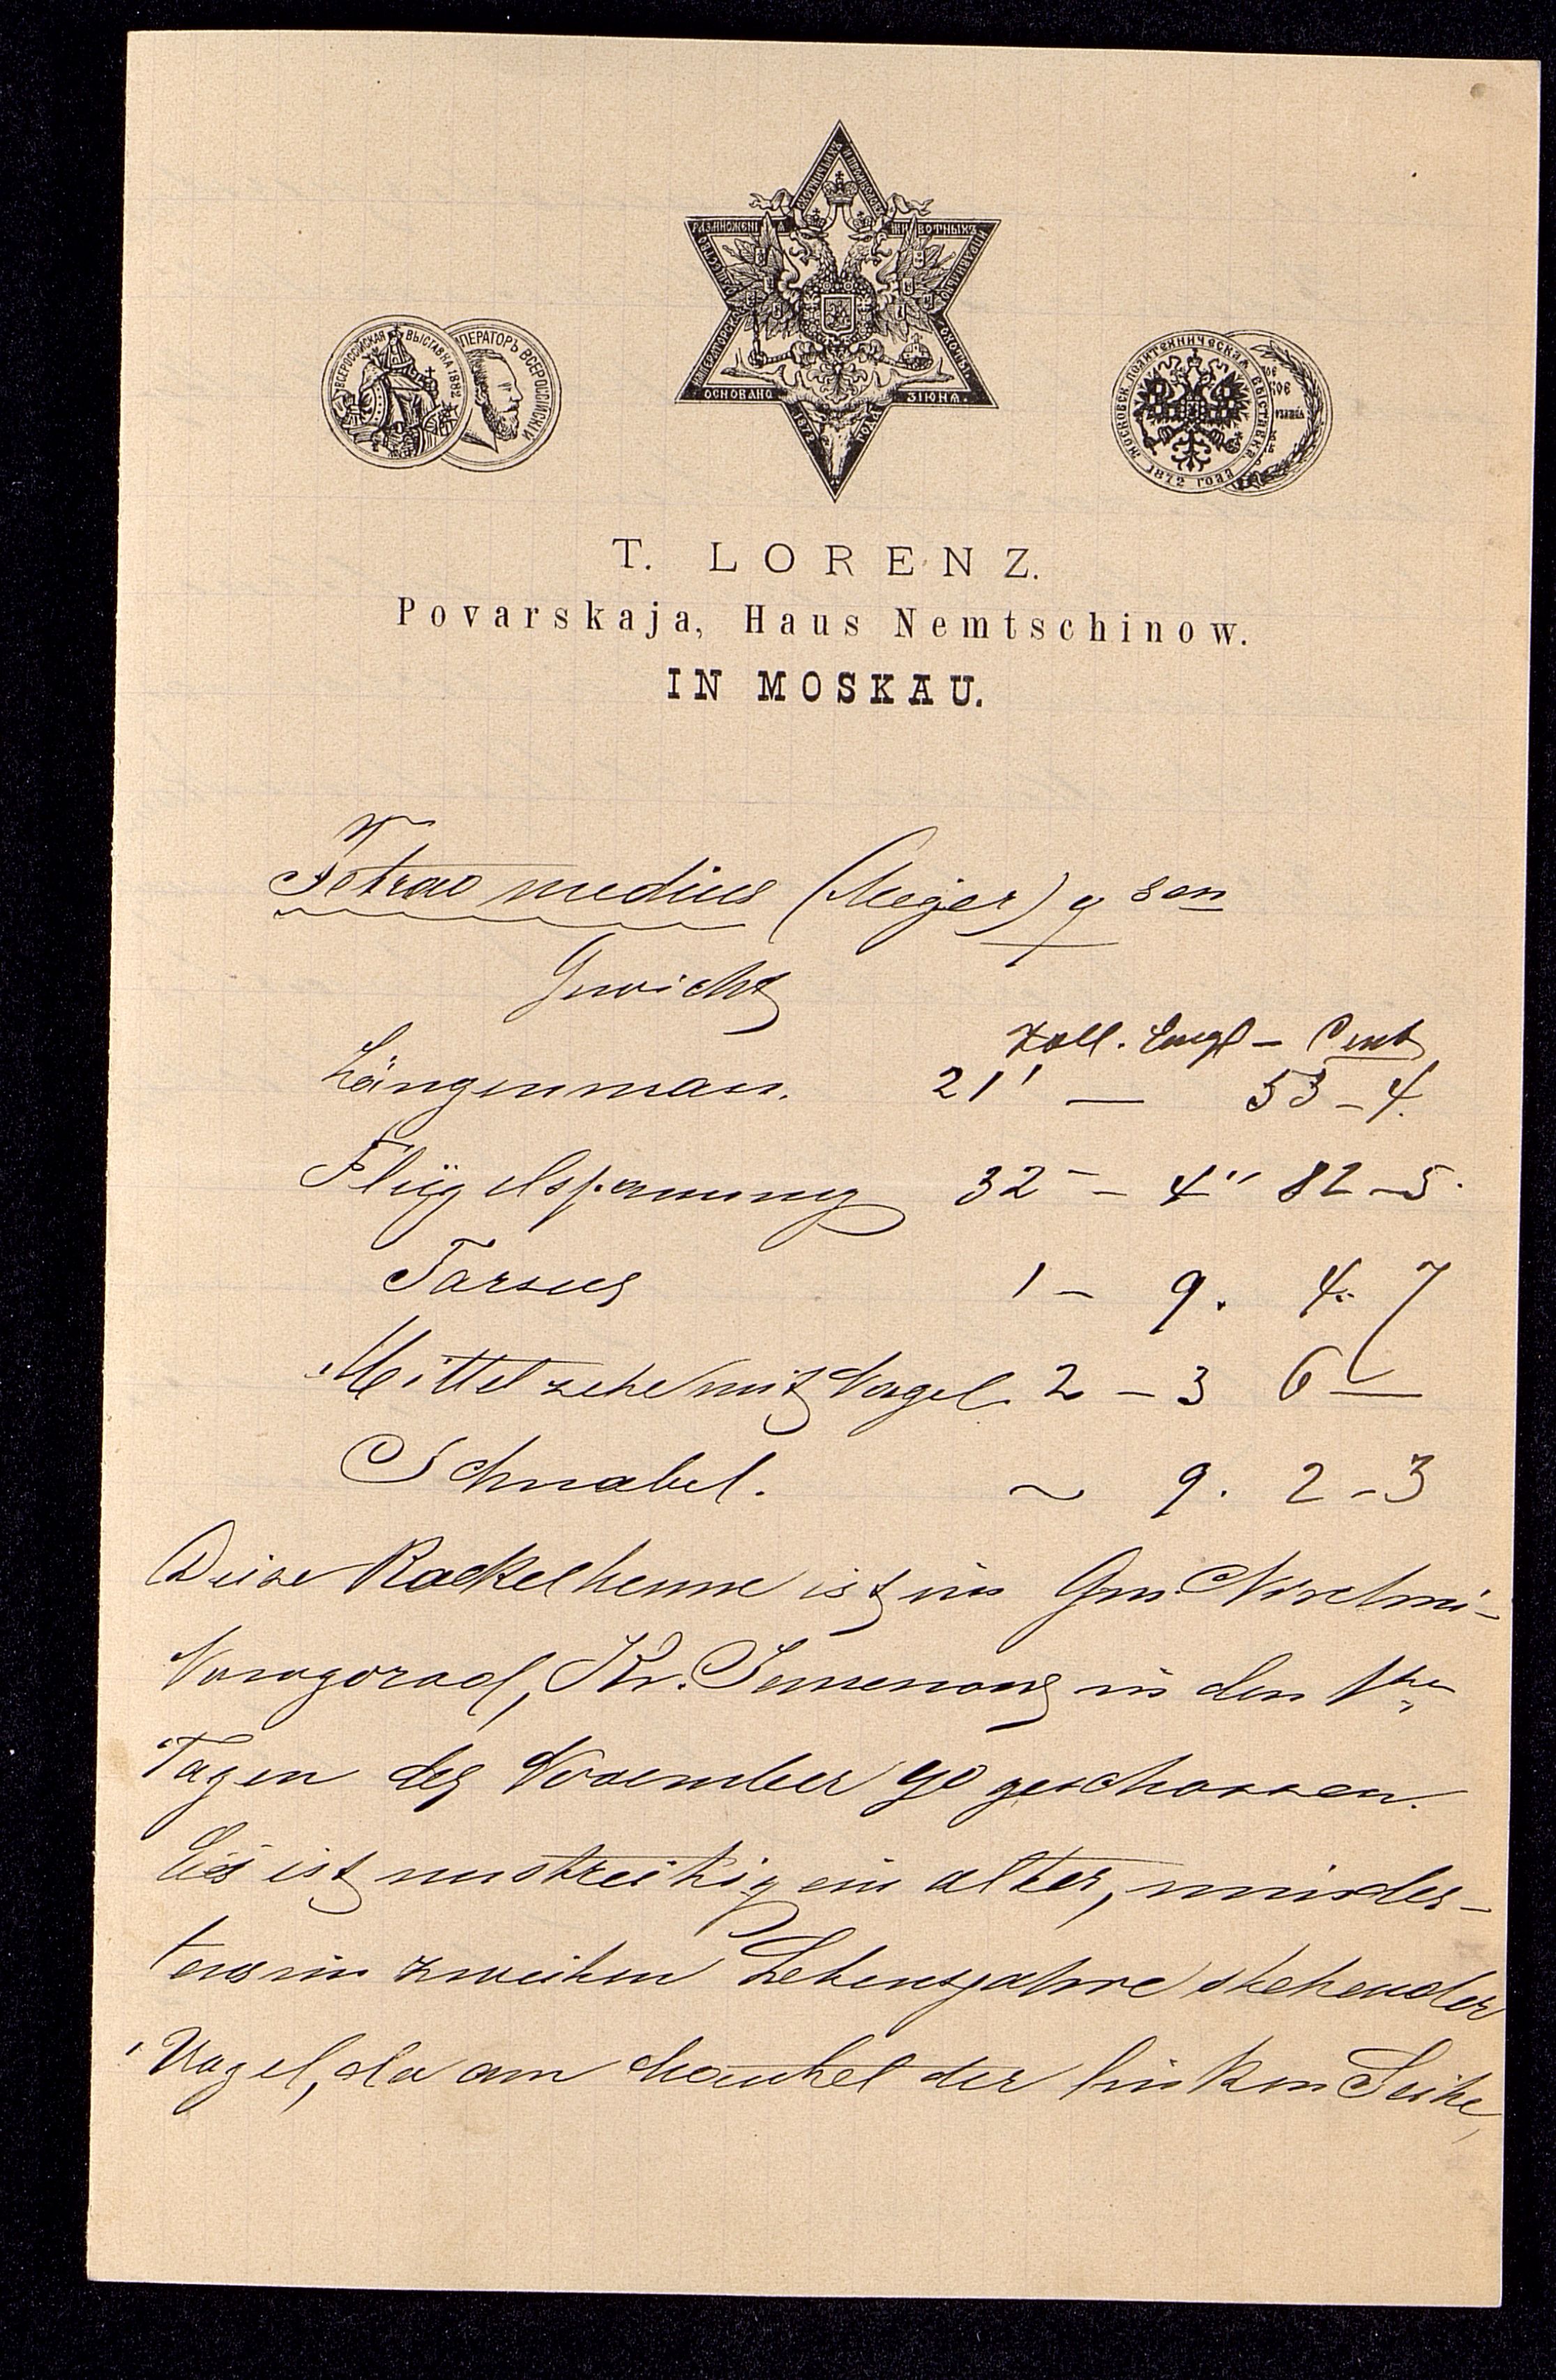 ИМПЕРАТОРСКОЕ ОБЩЕСТВО РАЗМНОЖЕНІЯ ОХОТНИЧЬИХЪ И ПРОМЫСЛОВ. ЖИВОТНЫХЪ И ПРАВИЛЬНО ОХОТЫ.
ОСНОВАНО 3 ІЮНЯ. 1872 ГОДА
ВСЕРОССІЙСКАЯ ВЫСТАВКА 1882
ИМПЕРАТОРЪ ВСЕРОССІЙСКІЙ
МОСКОВСК. ПОЛИТЕХНИЧЕСКАЯ ВЫСТАВКА 1872 ГОДА
T. LORENZ.
Povarskaja, Haus Nemtschinow.
IN MOSKAU.
Tetrao medius (Meyer) ♀ sen
Gewicht
Zoll. Engl – Cent
Längenmass. 21' — 53–4.
Flügelspannung 32 – 4" 82–5.
Tarsus 1 – 9. 4. 7
Mittelzehe mit Nagel. 2 – 3 6 —
Schnabel. ~ 9. 2–3
Diese Rackelhenne ist im Gou. Nischni-
Nowgorod, Kr. Semenow in den 1ten
Tagen des November 90 geschossen.
Es ist unstreitig ein alter, mindes-
tens im zweiten Lebensjahre stehender
Vogel, da am Schenkel der linken Seite,